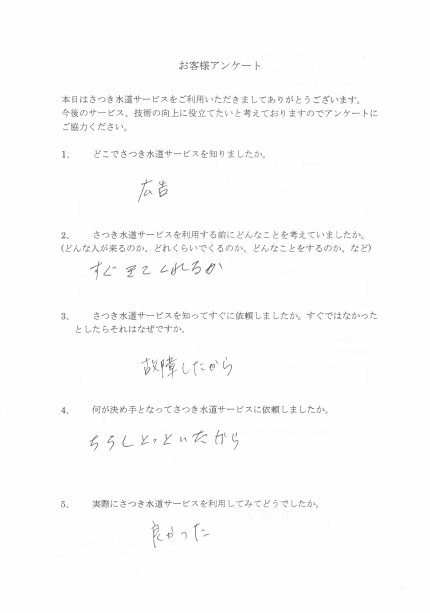 お客様アンケート
本日はさつき水道サービスをご利用いただきましてありがとうございます。
今後のサービス、技術の向上に役立てたいと考えておりますのでアンケートに
ご協力ください。
1、 どこでさつき水道サービスを知りましたか。
広告
2、 さつき水道サービスを利用する前にどんなことを考えていましたか。
(どんな人が来るのか、どれくらいでくるのか、どんなことをするのか、など)
すぐきてくれるか
3、 さつき水道サービスを知ってすぐに依頼しましたか。すぐではなかった
としたらそれはなぜですか。
故障したから
4、 何が決め手となってさつき水道サービスに依頼しましたか。
ちらしとっといたから
5、 実際にさつき水道サービスを利用してみてどうでしたか。
良かった